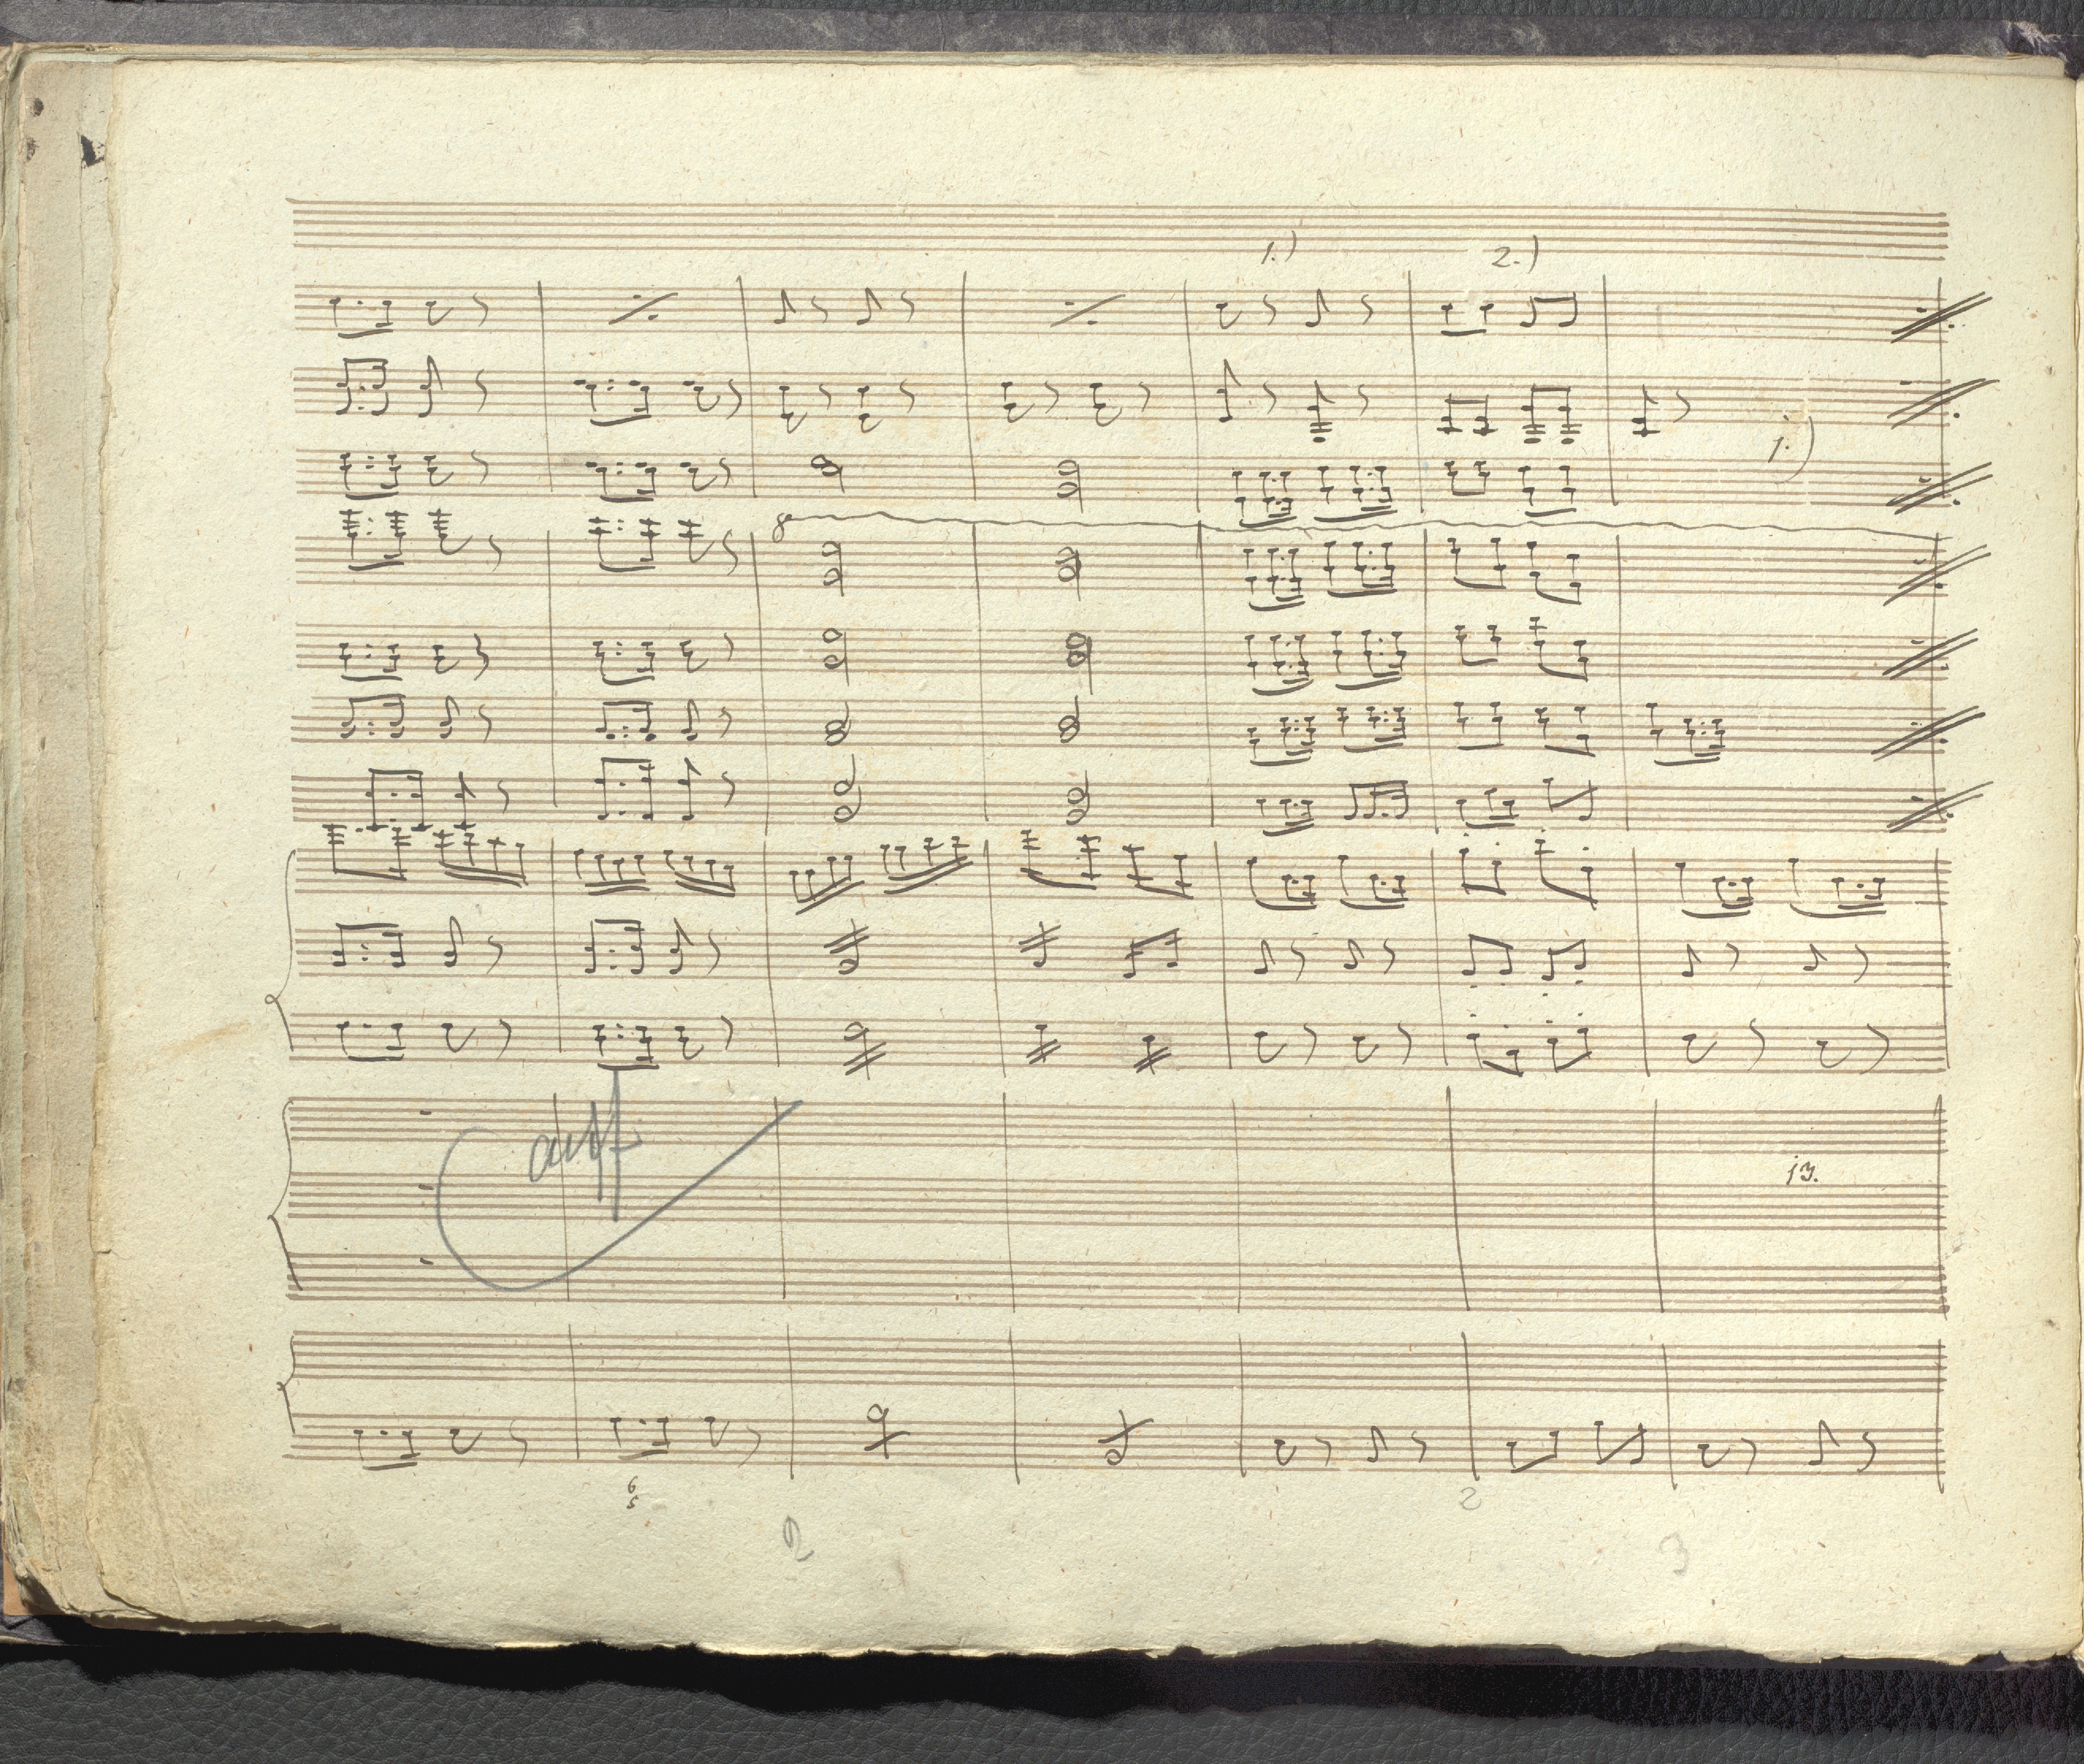 1.) 2.)
1.)
8
auff
13.
6
5
2
2 3